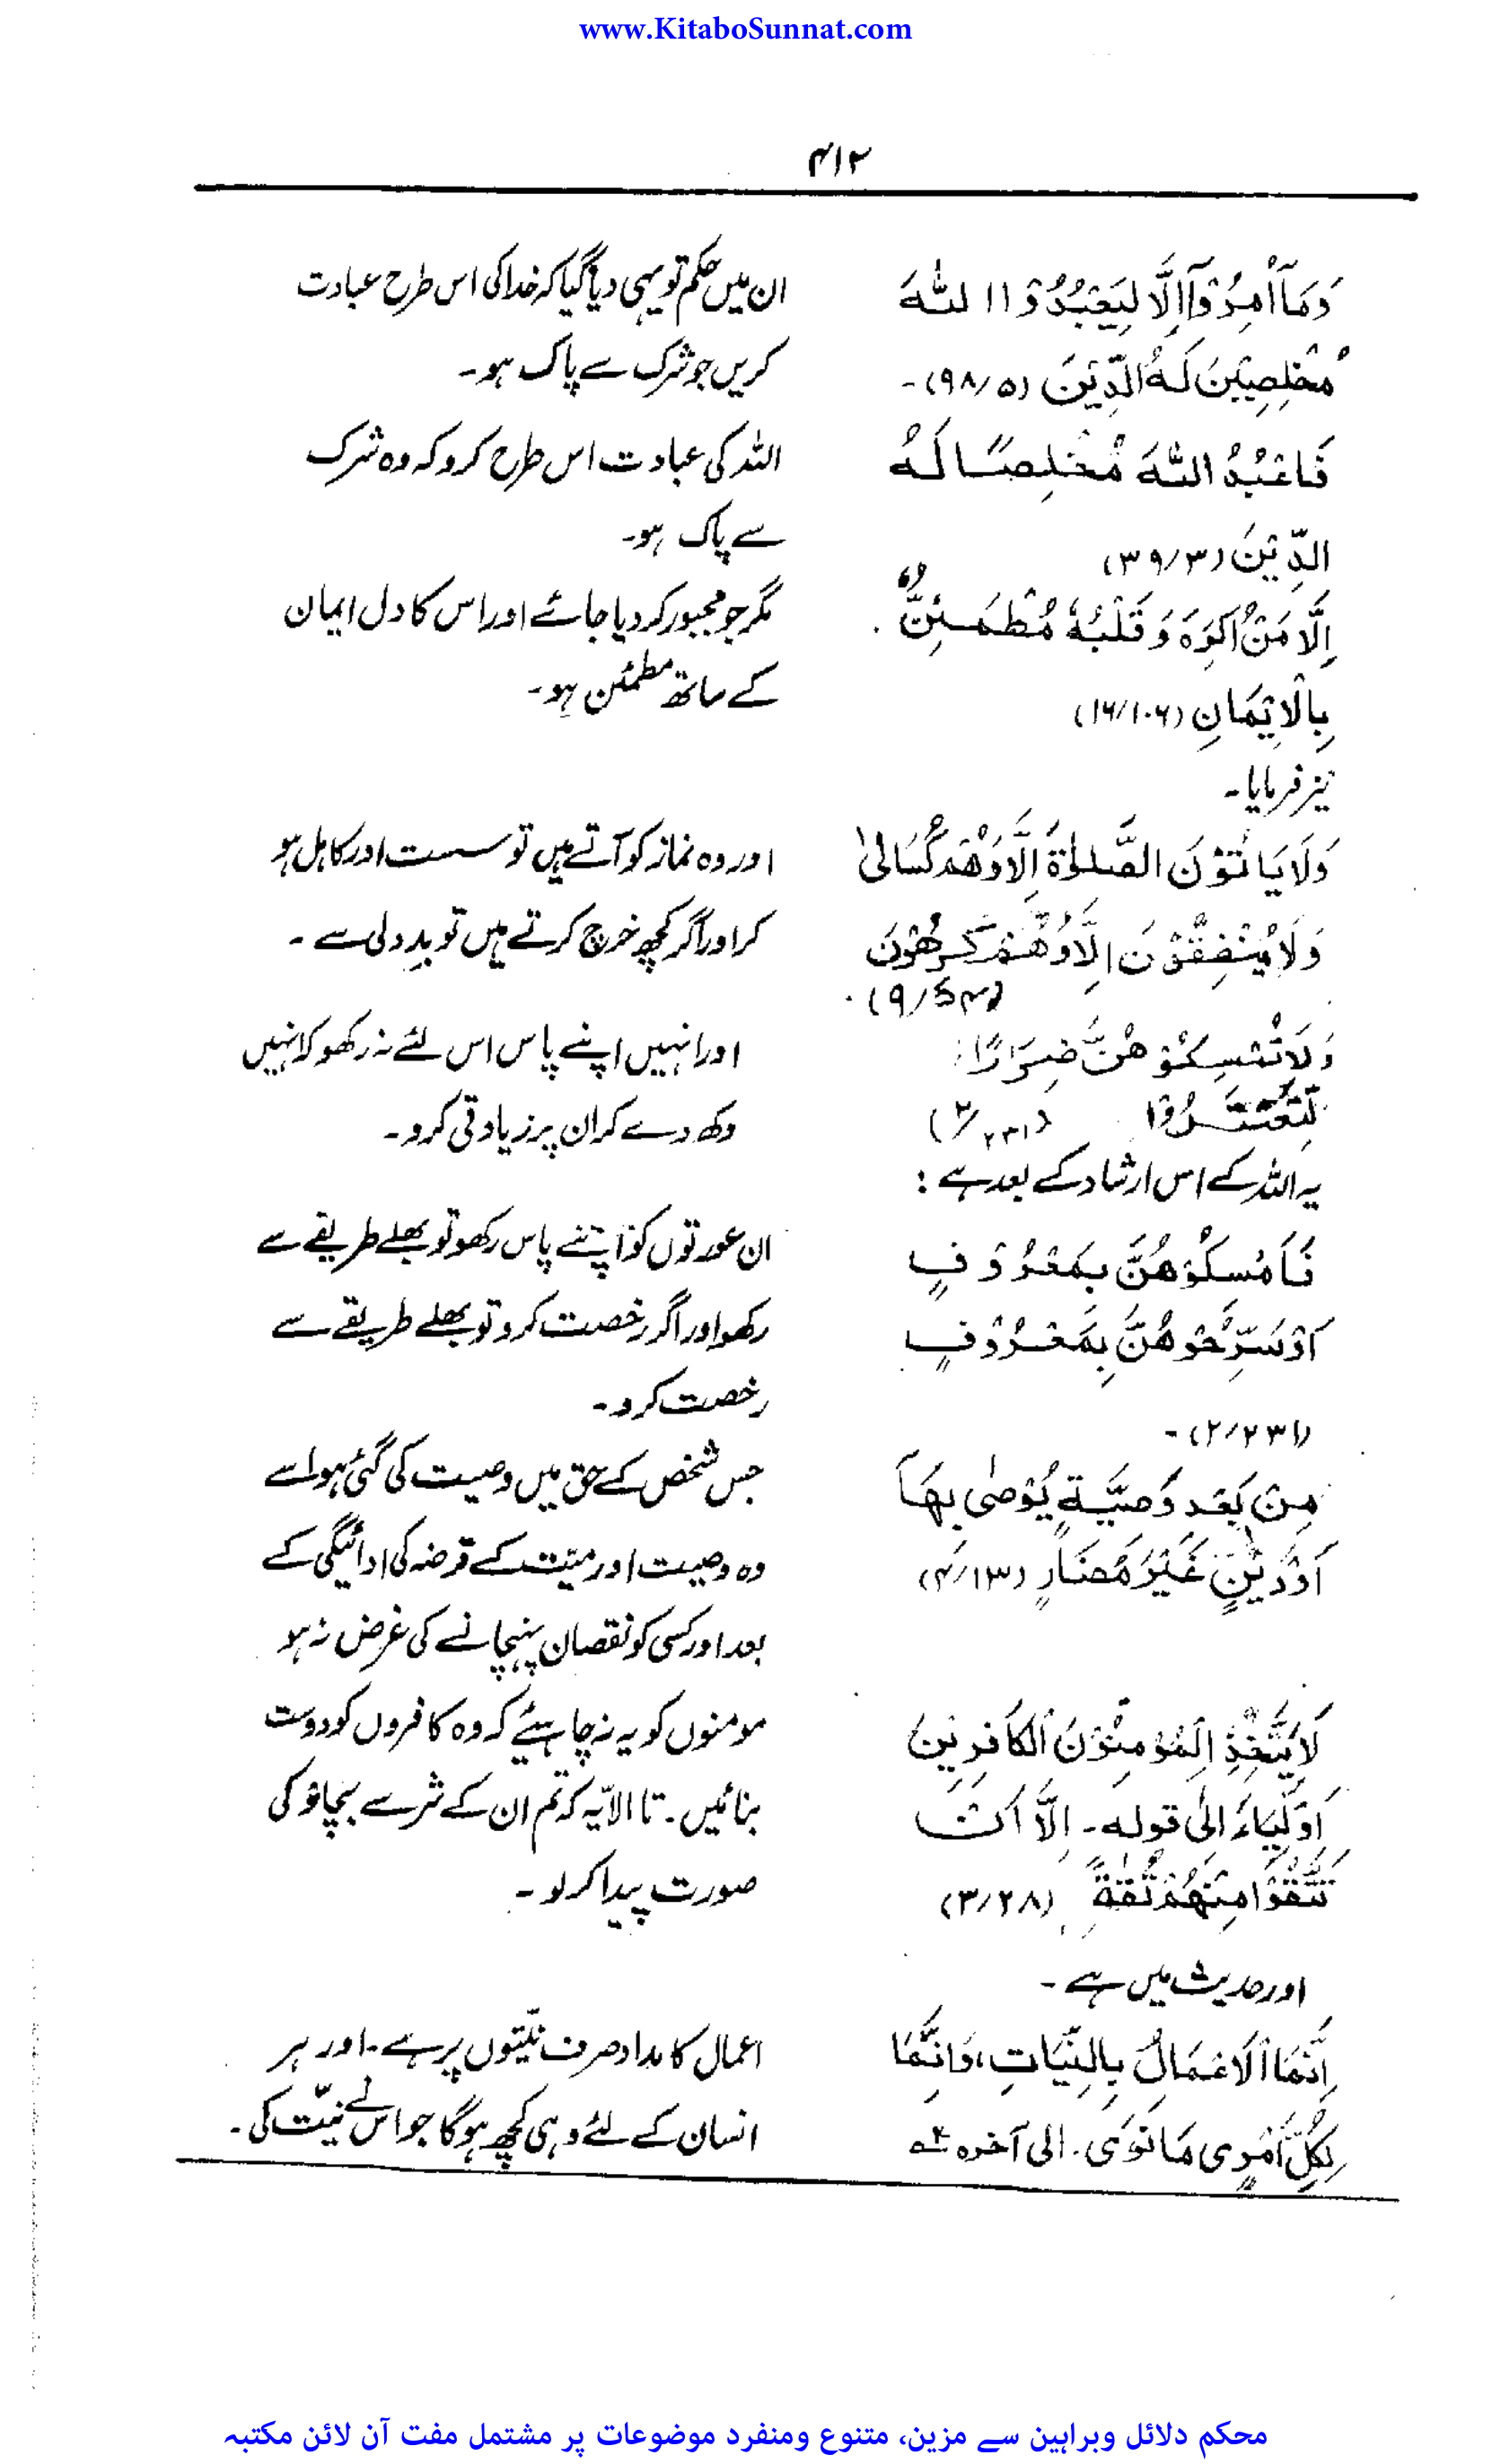 www.KitaboSunnat.com
۴۱۲
وَمَآ اُمِرُوْٓا اِلَّا لِيَعْبُدُوْا اللّٰهَ
مُخْلِصِيْنَ لَهُ الدِّيْنَ (۹۸/۵)۔
ان میں حکم تو یہی دیا گیا کہ خدا کی اس طرح عبادت
کریں جو شرک سے پاک ہو۔
فَاعْبُدُ اللّٰهَ مُخْلِصًا لَهُ
الدِّيْنَ (۳۹/۳)
اللہ کی عبادت اس طرح کرو کہ وہ شرک
سے پاک ہو۔
اِلَّا مَنْ اُكْرِهَ وَ قَلْبُهٗ مُطْمَئِنٌّ
بِالْاِيْمَانِ (۱۶/۱۰۶)
مگر جو مجبور کر دیا جائے اور اس کا دل ایمان
کے ساتھ مطمئن ہو۔
نیز فرمایا۔
وَلَا يَاْتُوْنَ الصَّلٰوةَ اِلَّا وَهُمْ كُسَالىٰ
وَلَا يُنْفِقُوْنَ اِلَّا وَهُمْ كٰرِهُوْنَ
(۹/۵۴)
اور وہ نماز کو آتے ہیں تو سست اور کاہل ہو
کر اور اگر کچھ خرچ کرتے ہیں تو بددلی سے ۔
وَلَا تُمْسِكُوْهُنَّ ضِرَارًا
لِّتَعْتَدُوْا (۲/۲۳۱)
اور انہیں اپنے پاس اس لئے نہ رکھو کہ انہیں
دکھ دے کر ان پر زیادتی کرو۔
یہ اللہ کے اس ارشاد کے بعد ہے :
فَاَمْسِكُوْهُنَّ بِمَعْرُوْفٍ
اَوْ سَرِّحُوْهُنَّ بِمَعْرُوْفٍ
(۲/۲۳۱)۔
ان عورتوں کو اپنے پاس رکھو تو بھلے طریقے سے
رکھو اور اگر رخصت کرو تو بھلے طریقے سے
رخصت کرو۔
مِنْ بَعْدِ وَصِيَّةٍ يُوْصٰى بِهَآ
اَوْ دَيْنٍ غَيْرَ مُضَارٍ (۴/۱۳)
جس شخص کے حق میں وصیت کی گئی ہو اسے
وہ وصیت اور میّت کے قرضہ کی ادائیگی کے
بعد اور کسی کو نقصان پہنچانے کی غرض نہ ہو
لَا يَتَّخِذِ الْمُؤْمِنُوْنَ الْكَافِرِيْنَ
اَوْلِيَاءَ الىٰ قوله۔ اِلَّا اَنْ
تَتَّقُوْا مِنْهُمْ تُقٰةً (۳/۲۸)
مومنوں کو یہ نہ چاہیئے کہ وہ کافروں کو دوست
بنائیں۔ تا الآیہ کہ تم ان کے شر سے بچاؤ کی
صورت پیدا کر لو ۔
اور حدیث میں ہے ۔
اِنَّمَا الْاَعْمَالُ بِالنِّيَّاتِ، وَاِنَّمَا
لِكُلِّ امْرِیٍ مَا نَوىٰ۔ الی آخرہ
اعمال کا مدار صرف نیّتوں پر ہے۔ اور ہر
انسان کے لئے وہی کچھ ہوگا جو اس نے نیّت کی۔
محکم دلائل وبراہین سے مزین، متنوع ومنفرد موضوعات پر مشتمل مفت آن لائن مکتبہ